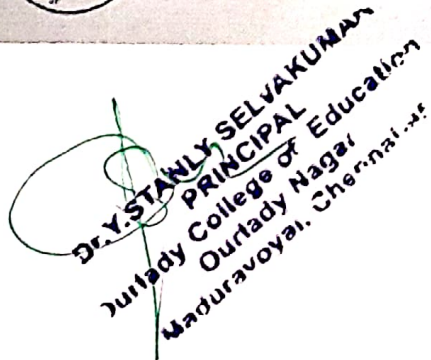 Dr.Y.STANLY SELVAKUMAR
PRINCIPAL
Ourlady College of Education
Ourlady Nagar
Maduravoyal, Chennai